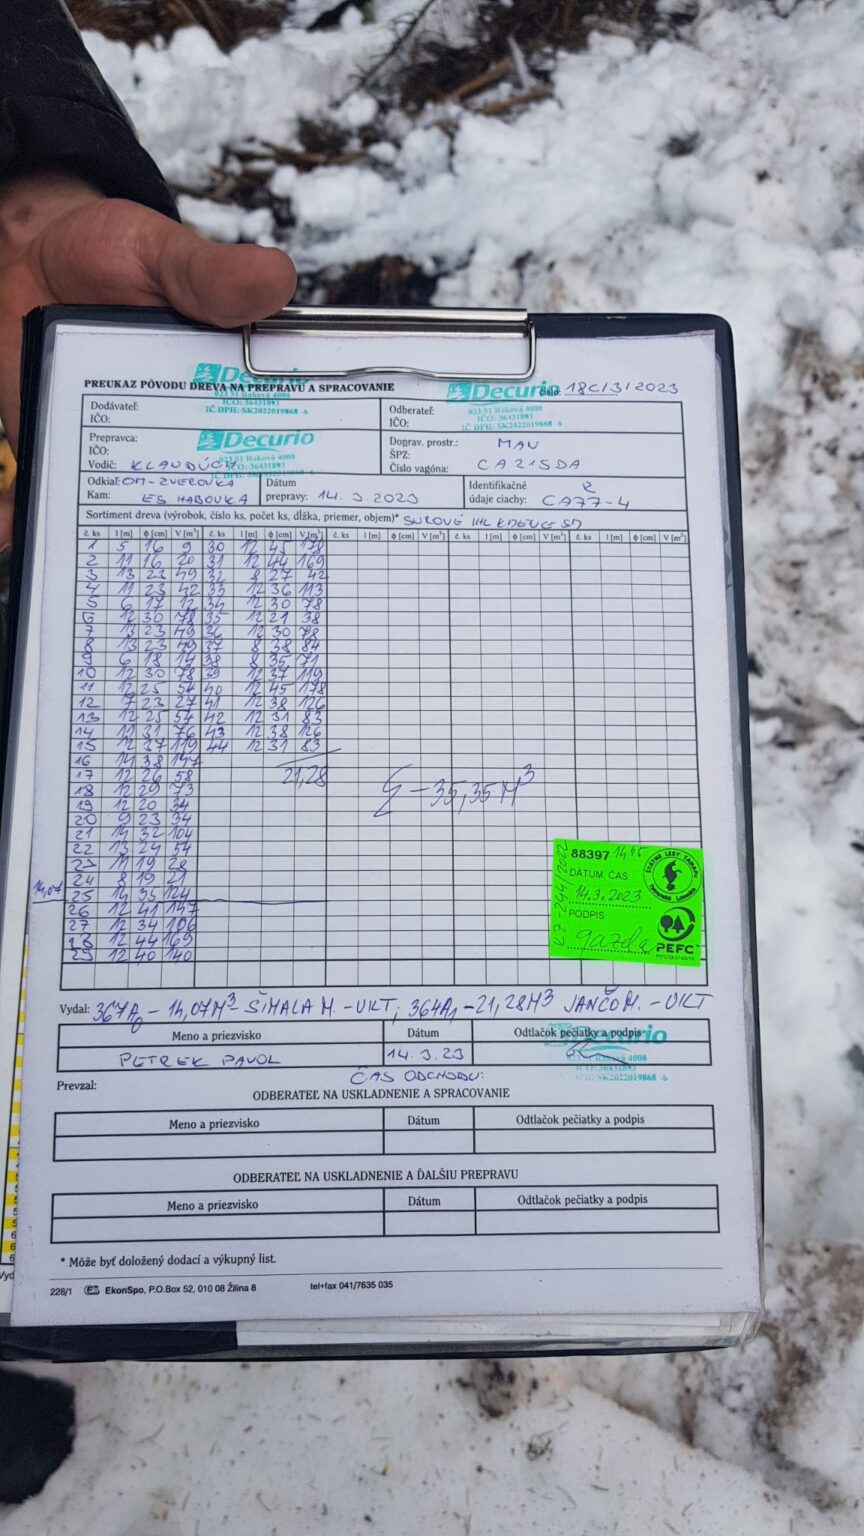 Decurio
023 51 Raková 4000
IČO: 36431893
IČ DPH: SK2022019868 -5-
Decurio
023 51 Raková 4000
IČO: 36431893
IČ DPH: SK2022019868 -5-
PREUKAZ PÔVODU DREVA NA PREPRAVU A SPRACOVANIE
číslo 18C/3/2023
Dodávateľ:
IČO:
Odberateľ:
IČO:
Prepravca:
IČO:
Vodič: KLANDÚCH
Decurio
023 51 Raková 4000
IČO: 36431893
IČ DPH: SK2022019868 -5-
Doprav. prostr.: MAN
ŠPZ:
Číslo vagóna: CA215DA
Odkiaľ: OM-ZVEROVKA
Kam: ES HABOVKA
Dátum
prepravy: 14. 3. 2023
Identifikačné
údaje ciachy: CA77-4
R
Sortiment dreva (výrobok, číslo ks, počet ks, dĺžka, priemer, objem)* SUROVÉ IHL
č. ks l [m] ϕ [cm] V [m³] č. ks l [m] ϕ [cm] V [m³] č. ks l [m] ϕ [cm] V [m³] č. ks l [m] ϕ [cm] V [m³] č. ks l [m] ϕ [cm] V [m³]
1 5 16 9 30 12 45 178
2 11 16 20 31 12 44 169
3 13 23 49 32 8 27 42
4 11 23 42 33 12 36 113
5 6 17 12 34 12 30 78
6 12 30 78 35 12 21 38
7 13 23 49 36 12 30 78
8 13 23 49 37 8 38 84
9 6 18 14 38 8 35 71
10 12 30 78 39 12 37 119
11 12 25 54 40 12 45 178
12 7 23 27 41 12 38 126
13 12 25 54 42 12 31 83
14 11 31 76 43 12 38 126
15 12 37 119 44 12 31 83
16 14 38 147
17 12 26 58 21,28
18 12 29 73 Σ - 35,35 M³
19 12 20 34
20 9 23 34
21 14 32 104
22 13 24 54
23 11 19 28
24 8 19 21
14,07 25 14 35 124
26 12 41 147
27 12 34 106
28 12 44 169
29 12 40 140
88397 14 45
DÁTUM, ČAS
14.3.2023
PODPIS:
gazda
KZ-244/2022
ŠTÁTNE LESY TANAPU
Tatranská Lomnica
PEFC
Vydal: 367A0 - 14,07M³ - ŠIMALA M. - UKT, 364A1 - 21,28M³ JANČO M. - UKT
Meno a priezvisko Dátum Odtlačok pečiatky a podpis
PETREK PAVOL 14. 3. 23
Decurio
023 51 Raková 4000
IČO: 36431893
IČ DPH: SK2022019868 -5-
Prevzal:
ČAS ODCHODU:
ODBERATEĽ NA USKLADNENIE A SPRACOVANIE
Meno a priezvisko Dátum Odtlačok pečiatky a podpis
ODBERATEĽ NA USKLADNENIE A ĎALŠIU PREPRAVU
Meno a priezvisko Dátum Odtlačok pečiatky a podpis
* Môže byť doložený dodací a výkupný list.
228/1 ES EkonSpo, P.O.Box 52, 010 08 Žilina 8 tel+fax 041/7635 035